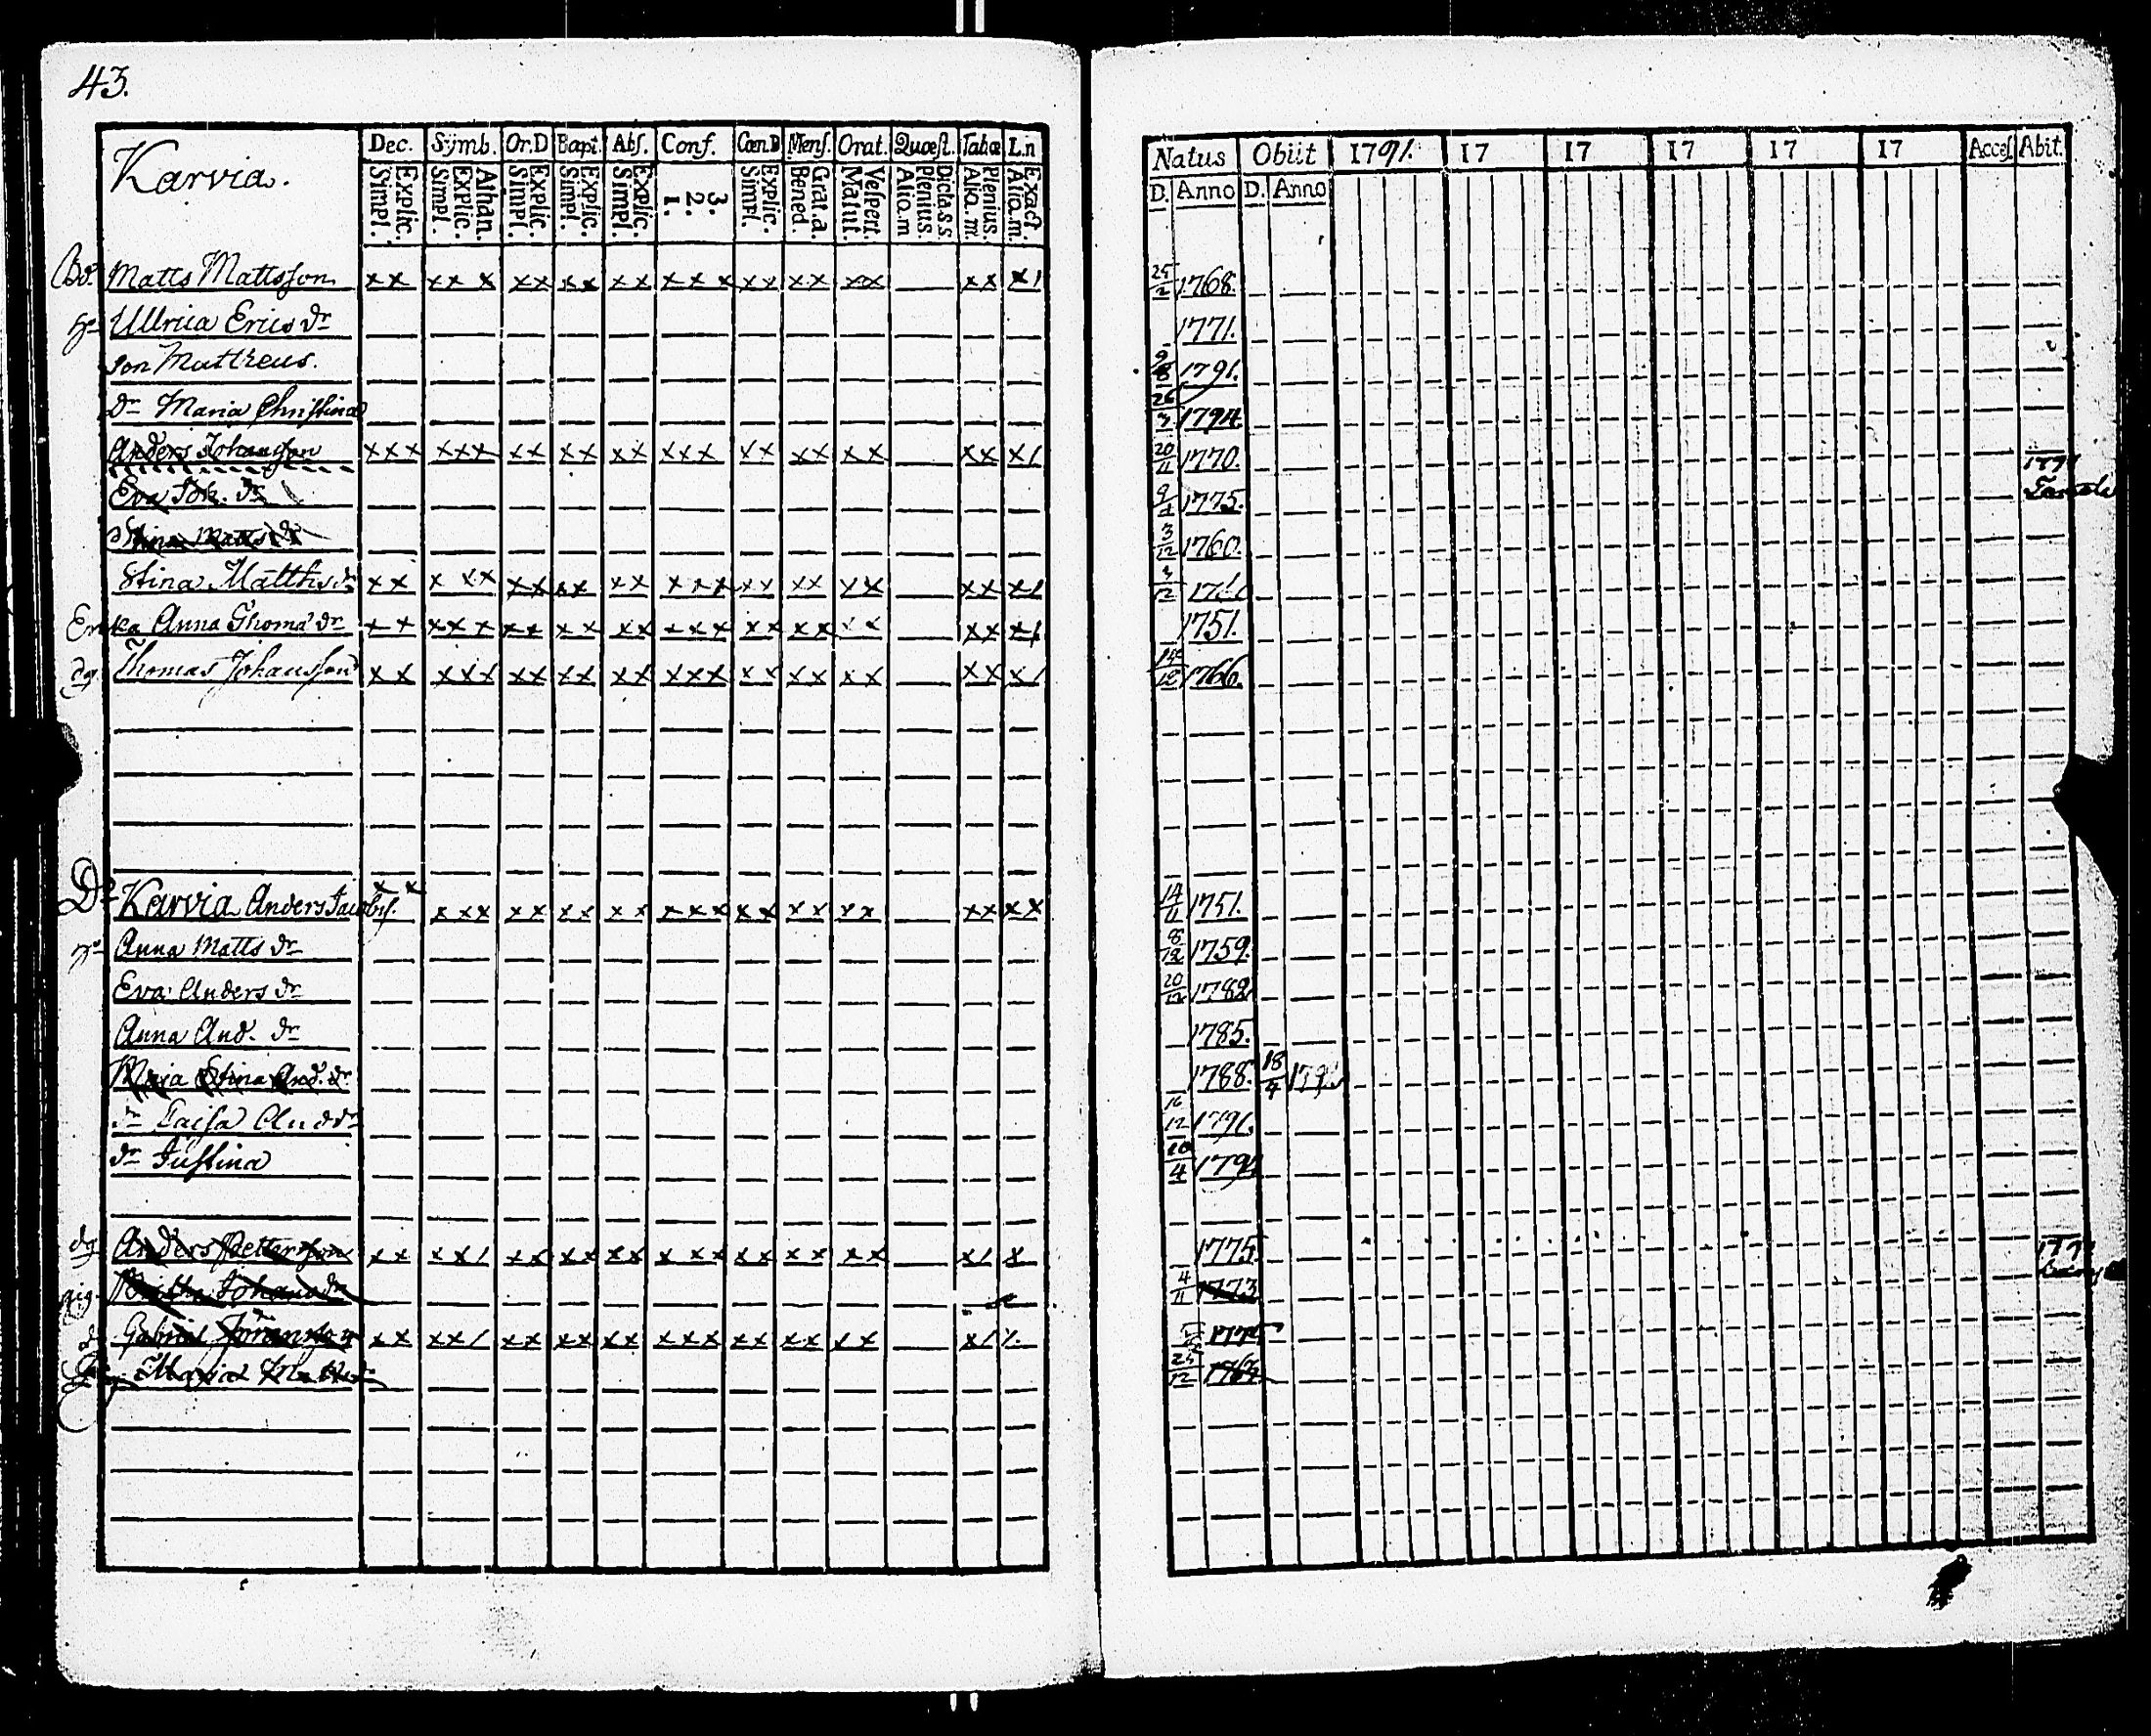 43.
Karvia.
Dec. Sÿmb. Or.D Bapt. Abſ. Conf. Cœn.D Menſ. Orat. Quæſt. Tabæ L.n
Explic. Simpl. Athan. Explic. Simpl. Explic. Simpl. Explic. Simpl. Explic. Simpl. 3. 2. 1. Explic. Simpl. Grat.a. Bened. Veſpert. Matut. Dicta.s.s. Plenius. Aliq.m Plenius. Aliq.m. Exact. Aliq.m.
Natus Obiit 1791. 17 17 17 17 17 Acceſ. Abit.
D. Anno D. Anno
Matts Mattsſon xx xxx xx xx xx xxx xx xx xx xx x/ 25/2 1768.
Ullrica Erics dr 1771.
son Mattheus. 1791.
dr Maria Christina 26/3 1794.
Anders Johansſon xxx xxx xx xx xx xxx xx xx xx xx x/ 20/11 1770.
Eva Joh. dr 1775.
Stina Matts dr 3/12 1760.
Stina Matths dr xx xxx xx xx xx xxx xx xx xx xx x/ 3/12
Enka Anna Thomæ dr xx xxx xx xx xx xxx xx xx xx xx x/ 1751.
dg Thomas Johansſon xx xxx xx xx xx xxx xx xx xx xx x/ 1766.
Do Karvia Anders Jacobſ. xx xxx xx xx xx xxx xx xx xx xx xx 14/11 1751.
Anna Matts dr 8/12 1759.
Eva Anders dr 20/12 1782
Anna And. dr 1785.
Maja Stina And. dr 1788. 18/4
dr Caiſa And dr 16/12 1791.
dr Juſtina 20/4
dg Anders Pettersſon xx xx/ xx xx xx xxx xx xx xx x/ x 1775.
pig. Johans dr 4/11 1773
Gabriel xx xx/ xx xx xx xxx xx xx xx x/
Maria 25/12